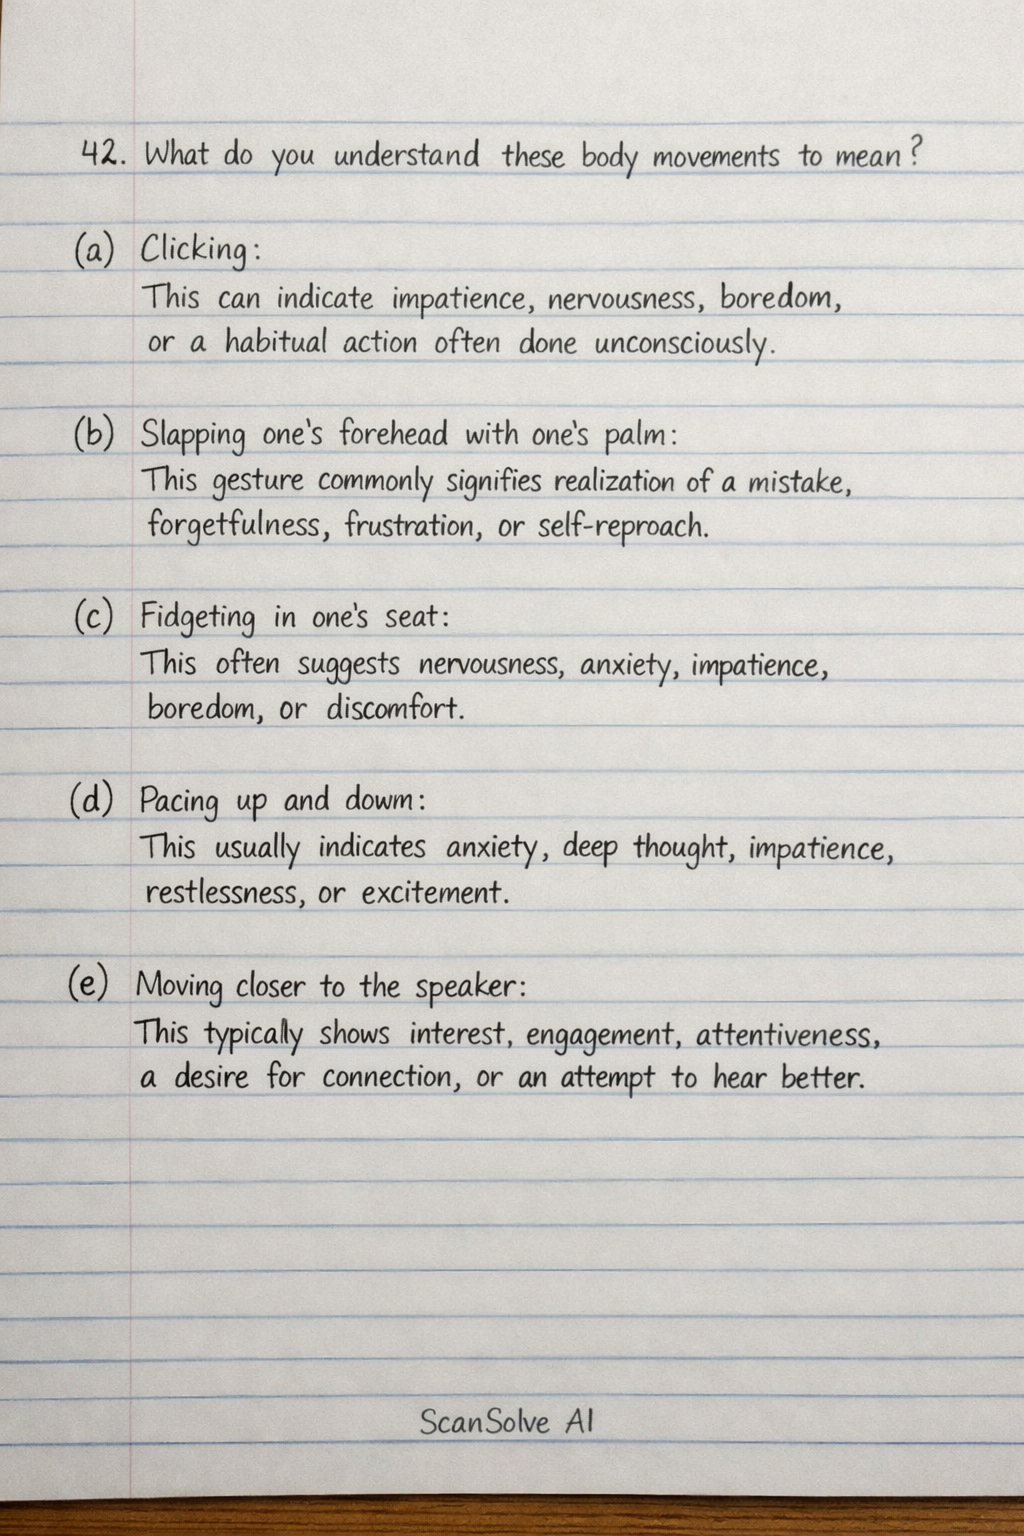 42. What do you understand these body movements to mean?
(a) Clicking:
This can indicate impatience, nervousness, boredom,
or a habitual action often done unconsciously.
(b) Slapping one's forehead with one's palm:
This gesture commonly signifies realization of a mistake,
forgetfulness, frustration, or self-reproach.
(c) Fidgeting in one's seat:
This often suggests nervousness, anxiety, impatience,
boredom, or discomfort.
(d) Pacing up and dowm:
This usually indicates anxiety, deep thought, impatience,
restlessness, or excitement.
(e) Moving closer to the speaker:
This typically shows interest, engagement, attentiveness,
a desire for connection, or an attempt to hear better.
ScanSolve AI